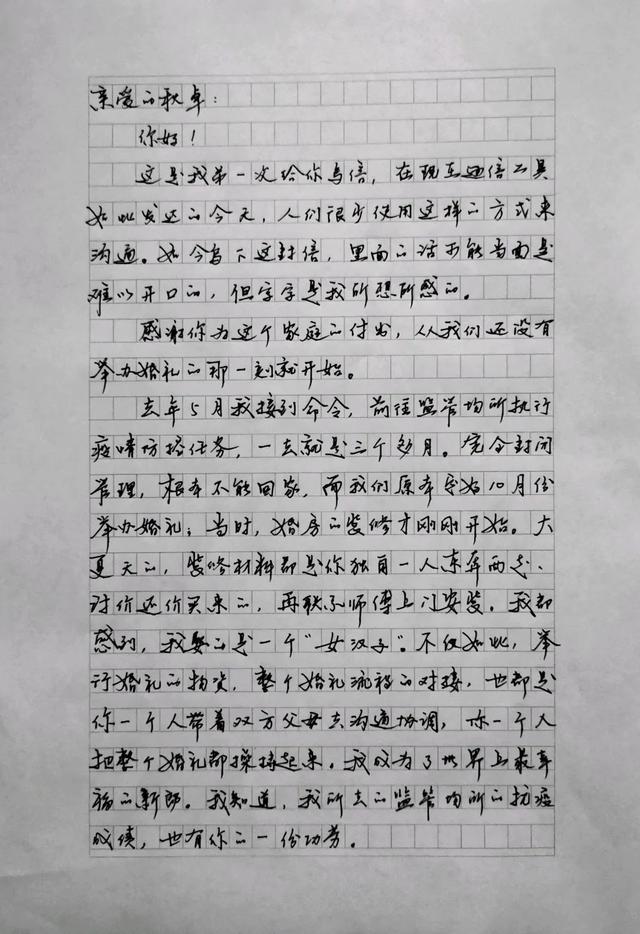 亲爱的秋卓：
你好！
这是我第一次给你写信，在现在通信工具
如此发达的今天，人们很少使用这样的方式来
沟通。如今写下这封信，里面的话可能当面是
难以开口的，但字字是我所想所感的。
感谢你为这个家庭的付出，从我们还没有
举办婚礼的那一刻就开始。
去年5月我接到命令，前往监管场所执行
疫情防控任务，一去就是三个多月。完全封闭
管理，根本不能回家，而我们原本10月份
举办婚礼；当时，婚房的装修才刚刚开始。大
夏天的，装修材料都是你独自一人东奔西走、
讨价还价买来的，再联系师傅上门安装。我都
感到，我娶的是一个“女汉子”。不仅如此，举
行婚礼的物资，整个婚礼流程的对接，也都是
你一个人带着双方父母去沟通协调，你一个人
把整个婚礼都操持起来。我成为了世界上最幸
福的新郎。我知道，我所去的监管场所的抗疫
成绩，也有你的一份功劳。